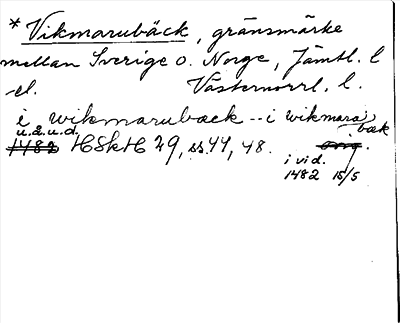 * Vikmarubäck, gränsmärke
mellan Sverige o. Norge, Jämtl. l
el. Västernorrl. l.
i wikmaruback -- i wikmara bæk
u.å.u.d.
1482 HSkH 29, ss 44, 48. orig.
i vid.
1482 15/5